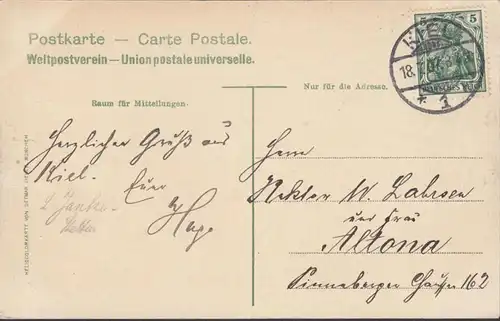 Postkarte — Carte Postale.
Weltpostverein — Union postale universelle.
5 5
KIEL
18.
* 1
DEUTSCHES REICH
Nur für die Adresse.
Raum für Mitteilungen.
Herzlichen Gruß aus
Kiel.
Euer
Hugo
Herrn
Rektor W. Lahrsen
und Frau
Altona
Pinneberger Chaussee 162